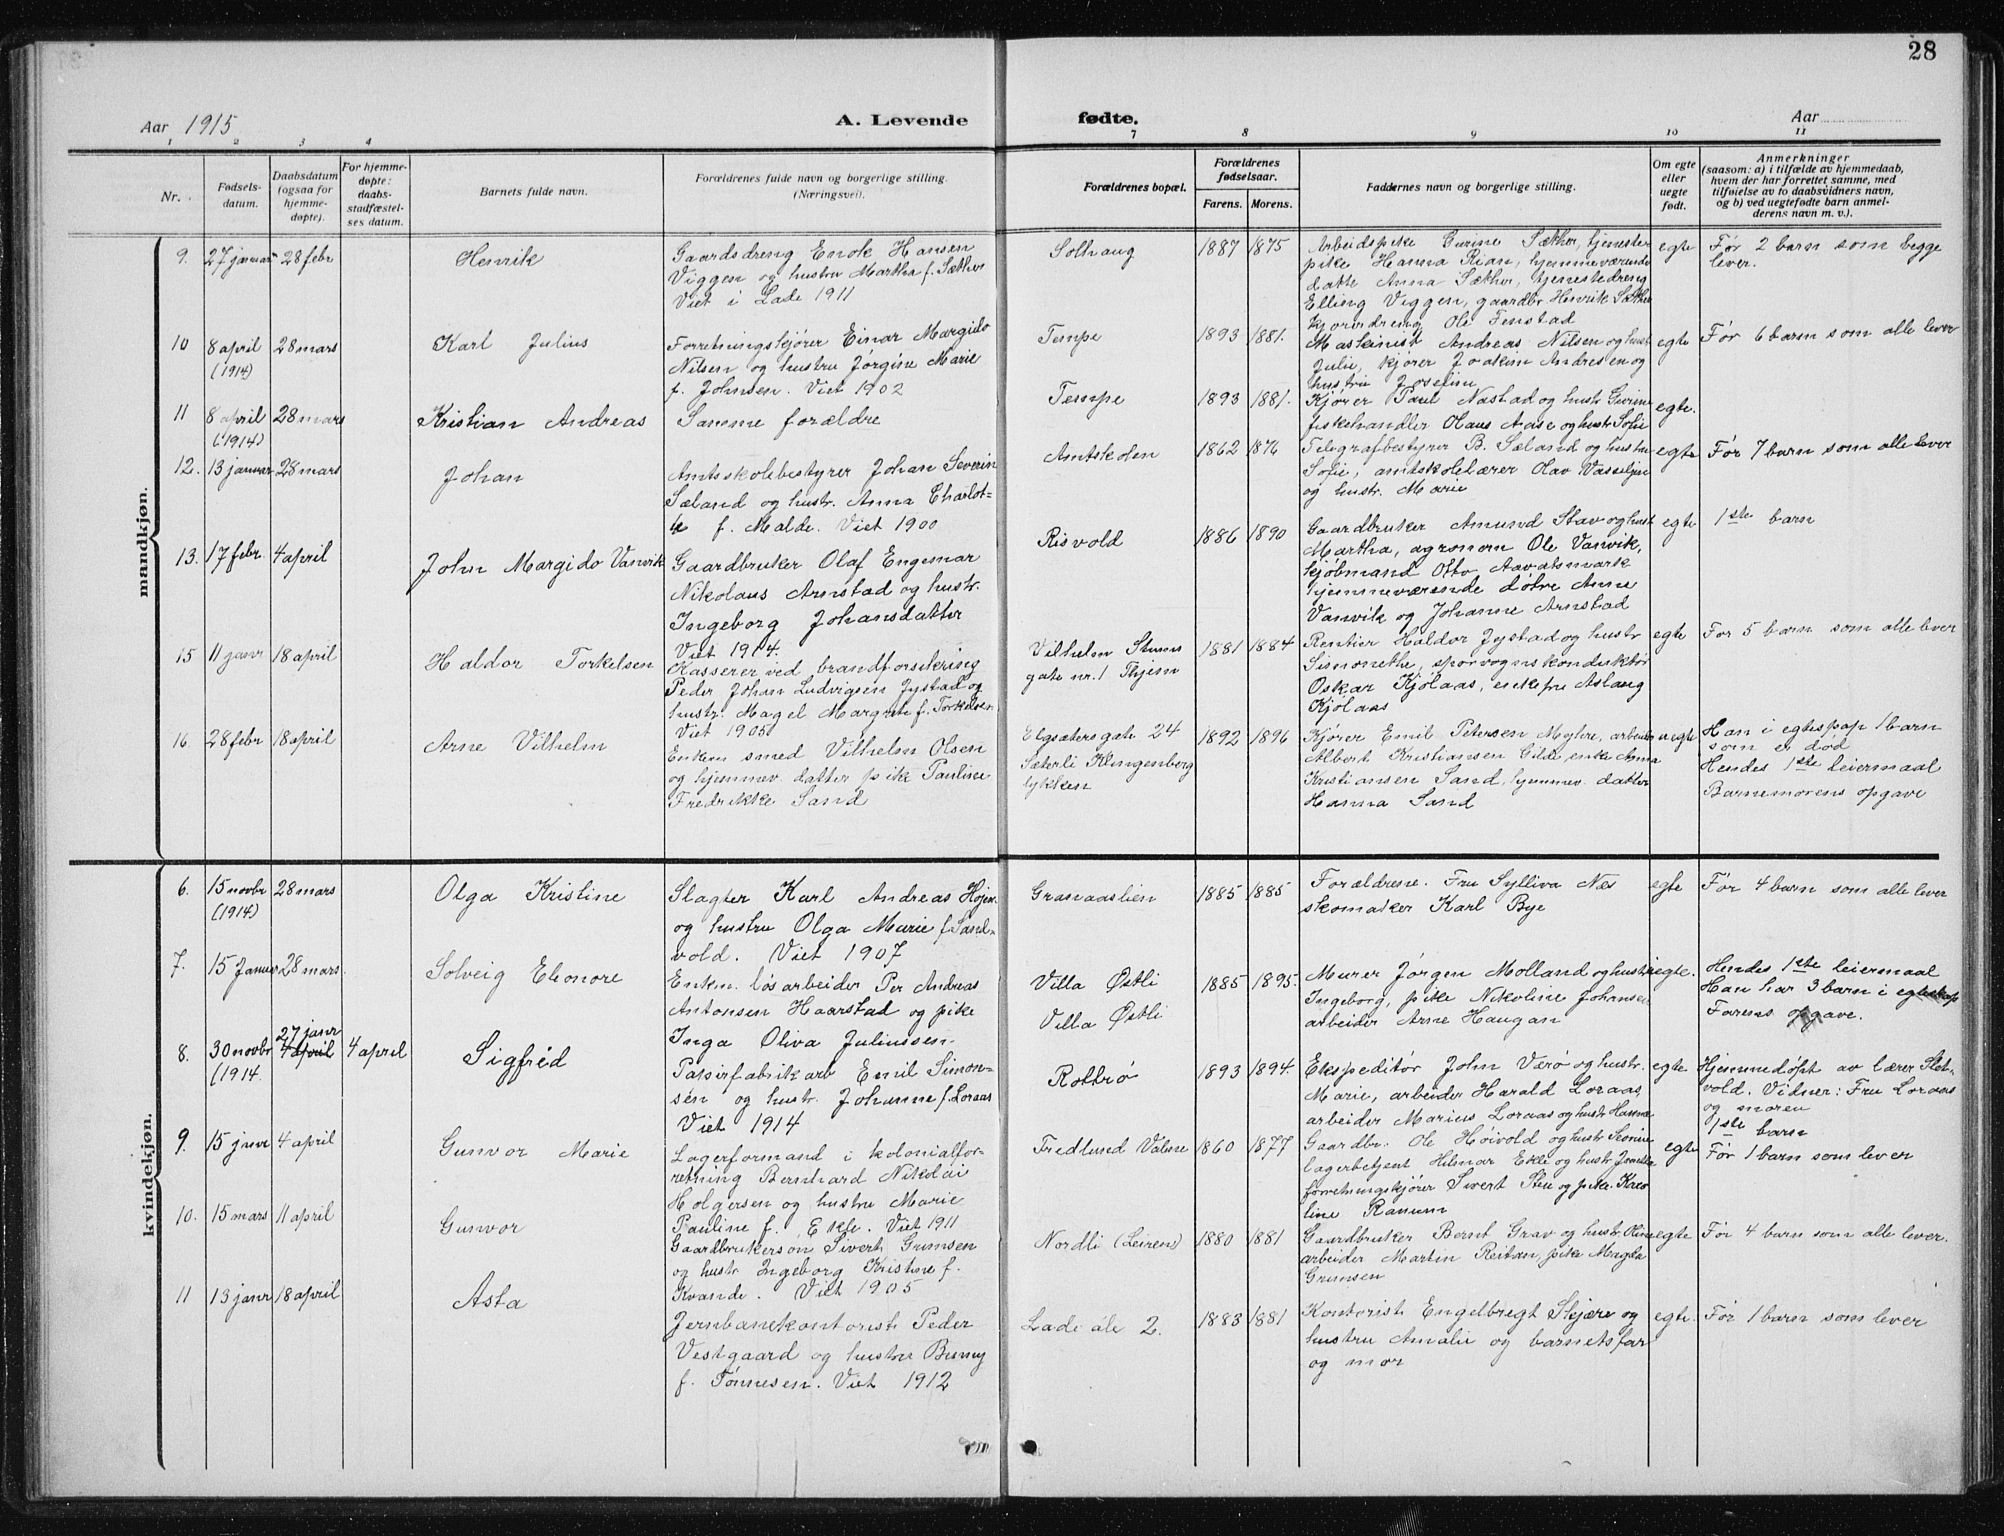 28
Aar 1915
A. Levende
fødte.
Aar
1 2 3 4 7 8 9 10 11
Nr.
Fødsels-
datum.
Daabsdatum
(ogsaa for
hjemme-
døpte).
For hjemme-
døpte:
daabs-
stadfæstel-
ses datum.
Barnets fulde navn.
Forældrenes fulde navn og borgerlige stilling.
(Næringsvei).
Forældrenes bopæl.
Forældrenes
fødselsaar.
Farens. Morens.
Faddernes navn og borgerlige stilling.
Om egte
eller
uegte
født.
Anmerkninger
(saasom: a) i tilfælde av hjemmedaab,
hvem der har forrettet samme, med
tilføielse av to daabsvidners navn,
og b) ved uegtefødte barn anmel-
derens navn m. v.).
mandkjøn.
9. 27 januar 28 febr Henrik
Gaardsdreng Enok Hansen
Viggen og hustru Martha f. Sæther
Viet i Lade 1911
Solhaug 1887 1875
Arbeidspike Gurine Sæther, tjeneste
pike Hanna Rian, hjemmeværende
datte Anna Sæther, tjenestedreng
Elling Viggen, gaardbr. Henrik Sæther
kjøredreng Ole Fenstad
egte
Før 2 barn som begge
lever.
10 8 april
(1914)
28 mars Karl Julius
Forretningskjører Einar Margido
Nilsen og hustru Jørgine Marie
f. Johnsen. Viet 1902
Tempe 1893 1881.
Maskinist Andreas Nilsen og hust
Julie, kjører Joakim Andresen og
hustru Josefine
egte
Før 6 barn som alle lever
11 8 april
(1914)
28 mars Kristian Andreas
Samme forældre
Tempe 1893 1881.
Kjører Paul Nastad og hustr Gurine
fiskehandler Olaus Aase og hustr Sofie
egte.
12. 13 januar 28 mars Johan
Amtsskolebestyrer Johan Severin
Sæland og hustr. Anna Charlot-
te f. Malde. Viet 1900
Amtskolen 1862 1876
Telegrafbestyrer B. Sæland og hustru
Sofie, amtskolelærer Olav Vasseljen
og hustr. Marie
egte
Før 7 barn som alle lever
13. 17 febr 4 april John Margido Vanvik
Gaardbruker Olaf Engemar
Nikolaus Arnstad og hustr.
Ingeborg Johansdatter
Viet 1914.
Risvold 1886 1890
Gaardbruker Amund Stav og hust
Martha, agronom Ole Vanvik,
kjøbmand Otto Aavatsmark
hjemmeværende døtre Anne
Vanvik og Johanne Arnstad
egte
1ste barn
15 11 janr 18 april Haldor Torkelsen
Kasserer ved brandforsikring
Peder Johan Ludvigsen Jystad og
hustr. Magel Margrete f. Torkelsen
Viet 1905
Vilhelm Storms
gate nr. 1 Thjem
1881 1884
Rentier Haldor Jystad og hustr
Simonethe, sporvognskonduktør
Oskar Kjølaas, enkefru Aslaug
Kjølaas
egte
Før 5 barn som alle lever
16 28 febr 18 april Arne Vilhelm
Enkem smed Vilhelm Olsen
og hjemmev. datter pike Pauline
Fredrikke Sand
Elgsetersgate 24
Sæterli Klingenberg
lykken
1892 1896
Kjører Emil Petersen Myhre, arbeider
Albert Kristiansen Gilde, enke Anna
Kristiansen Sand, hjemmev. datter
Hanna Sand
uegte
Han i egteskap 1 barn
som er død
Hendes 1ste leiermaal
Barnemorens opgave
kvindekjøn.
6. 15 novbr
(1914)
28 mars Olga Kristine
Slagter Karl Andreas Højem
og hustru Olga Marie f. Sand-
vold. Viet 1907
Granaaslien 1885 1885
Forældrene. Fru Sylliva Næs
skomaker Karl Bye
egte
Før 4 barn som alle lever
7. 15 Januar 28 mars. Solveig Eleonore
Enkm. løsarbeider Per Andreas
Antonsen Haarstad og pike
Inga Oliva Juliussen
Villa Østli
Villa Østli
1885 1895.
Murer Jørgen Molland og hustr
Ingeborg, pike Nikoline Johansen
arbeider Arne Haugan
uegte.
Hendes 1ste leiermaal
Han har 3 barn i egteskap
Farens opgave.
8. 30 novbr
(1914.
27 janr
4 april
4 april Sigfréd
Papirfabrikarb Emil Simon-
sen og hustr. Johanne f. Loraas
Viet 1914
Rotbrø 1893 1894.
Ekspeditør John Værø og hustr.
Marie, arbeider Harald Loraas,
arbeider Marius Loraas og hustr. Hanna
egte
Hjemmedøpt av lærer Slet-
vold. Vidner: Fru Loraas
og moren
1ste barn
9. 15 janr 4 april Gunvor Marie
Lagerformand i kolonialfor-
retning Bernhard Nikolai
Holgersen og hustru Marie
Pauline f. Ekle. Viet 1911
Fredlund Valene 1860 1877
Gaardbr. Ole Høivold og hustr Leonine
lagerbetjent Hilmar Ekle og hustr. Janetta
forretningskjører Sivert Stue og pike Karo
line Ranum
egte
Før 1 barn som lever
10. 15 mars 11 april Gunvor
Gaardbrukerson Sivert Grimsen
og hustr Ingeborg Kristine f.
Kvande. Viet 1905
Nordli (Leiren) 1880 1881
Gaardbruker Bernt Grav og hustr. Oline
arbeider Martin Reitan, pike Magda
Grimsen
egte
Før 4 barn som alle lever.
11 13 janr 18 april Asta
Jernbanekontorist Peder
Vestgaard og hustru Benny
f. Tønnesen. Viet 1912
Lade alé 2. 1883 1881
Kontorist Engelbregt Skjære og
hustru Amalie og barnets far
og mor
egte.
Før 1 barn som lever